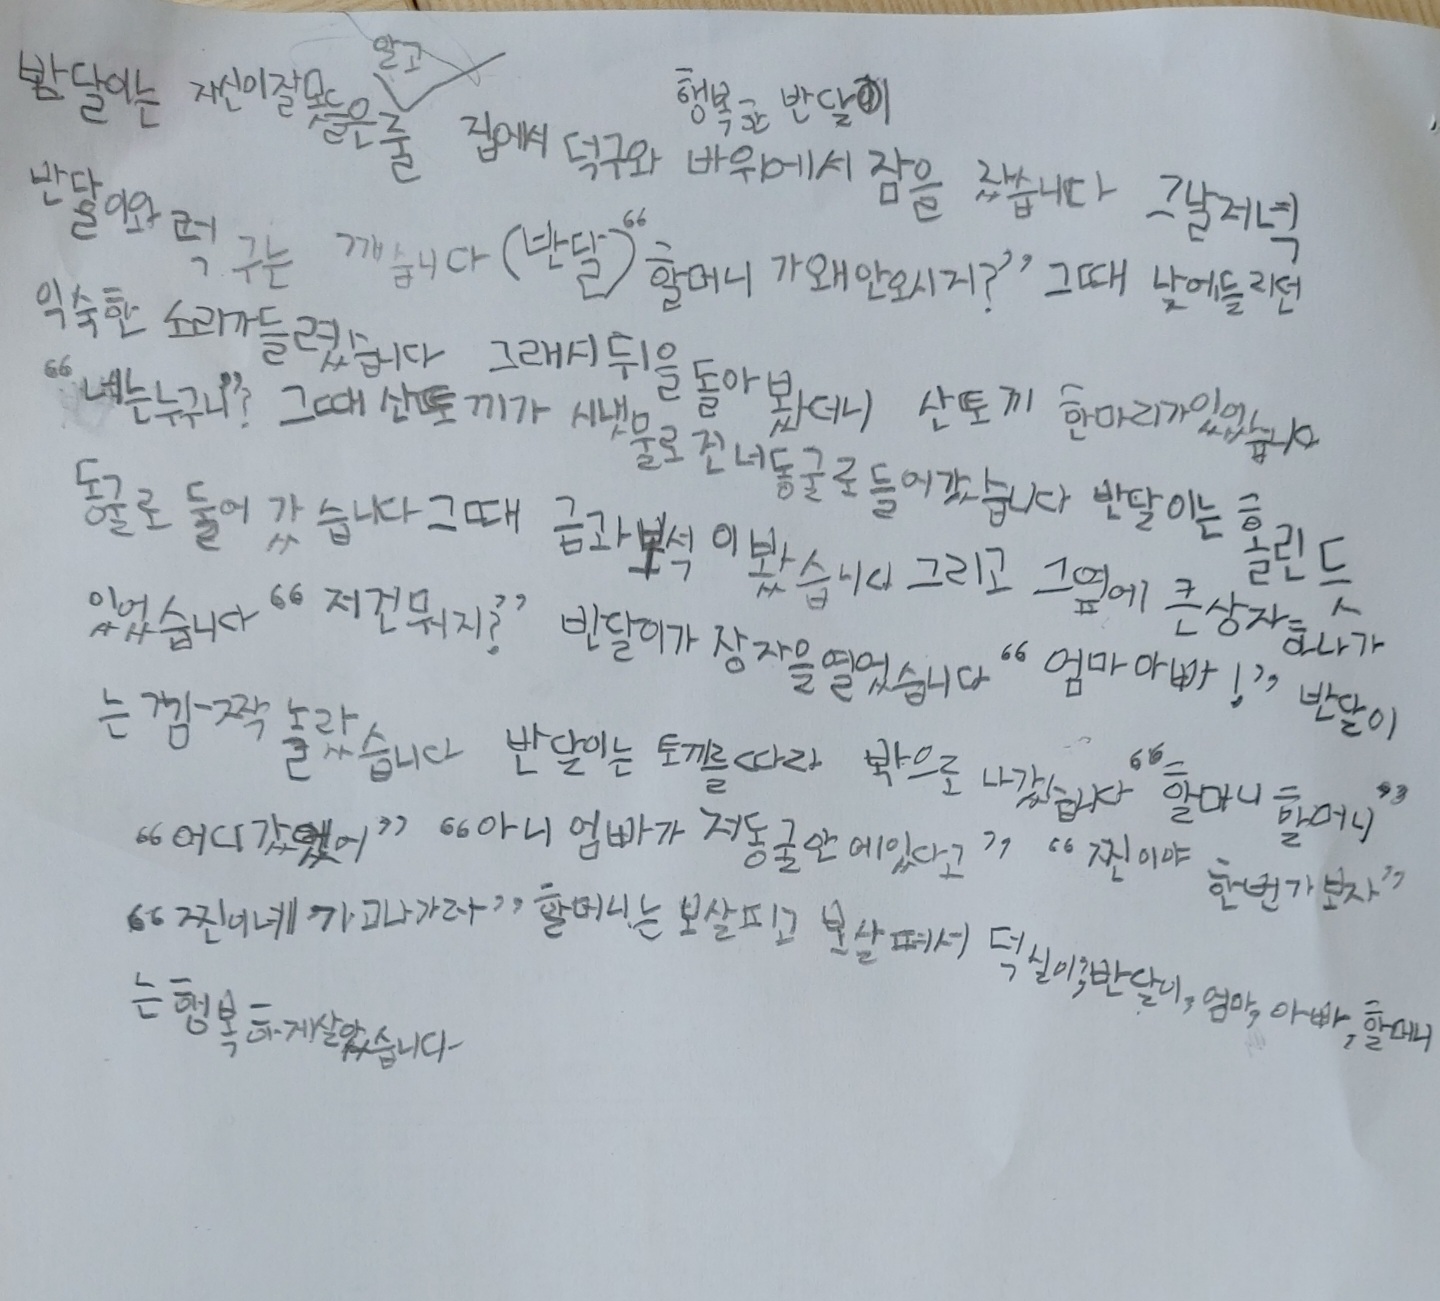 행복한 반달이
밤달이는 자신이잘못들은줄 알고 집에서 덕구와 바위에서 잠을 잤습니다 그날저녁
반달이와 덕구는 깨습니다 (반달) “할머니 가왜안오시지?” 그때 낮에들리던
익숙한 소리가들렸습니다 그래서뒤을돌아봤더니 산토끼 한마리가있었습니다
“네는누구니”? 그때산토끼가 시냇물로건너동굴로들어갔습니다 반달이는홀린듯
동굴로 들어 갔습니다그때 금과보석이봤습니다 그리고 그옆에 큰상자하나가
있었습니다 “저건뭐지?” 반달이가 장자을열었습니다 “엄마아빠!” 반달이
는 깜-짝 놀랐습니다 반달이는 토끼를따라 밖으로 나갔습니다 “할머니 할머니”
“어디갔었어” “아니 엄빠가 저동굴안에있다고” “찐이야 한번가보자”
“찐이네 할머니는 보살피고 보살펴서 덕실이,반달이,엄마,아빠,할머니
는행복하게살았습니다